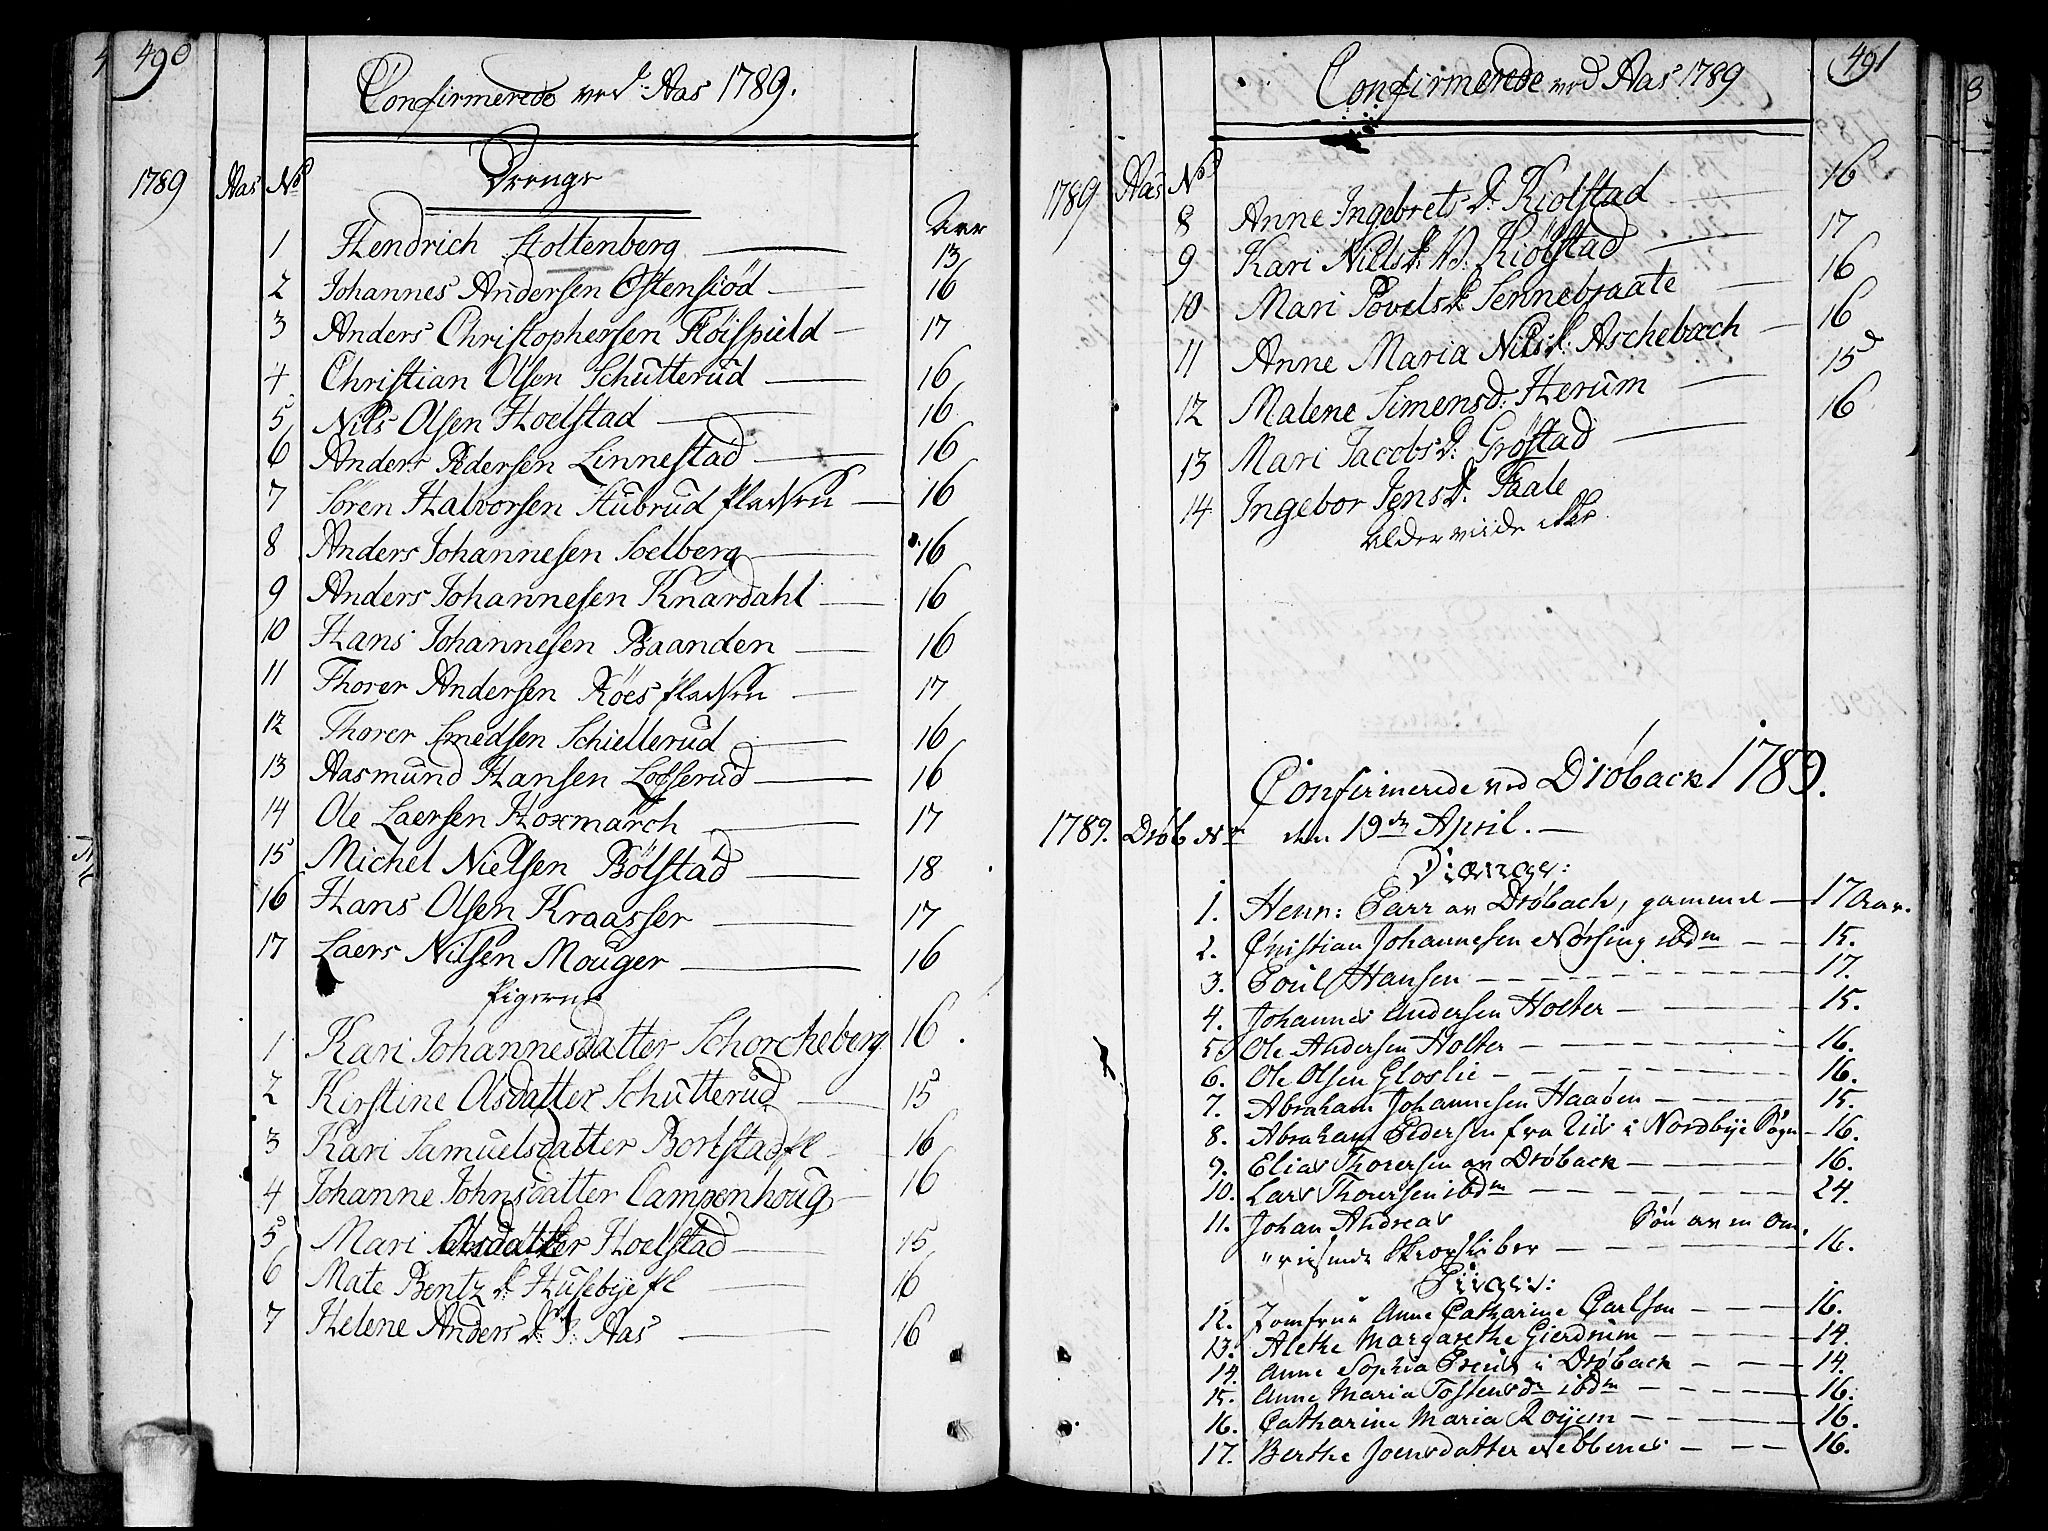 490
Confirmerede ved Aas 1789.
1789 Aas No Drenge
Aar
1 Hendrich Holtenberg 13
2 Johannes Andersen Ostensiöd 16
3 Anders Christophersen Fløispield 17
4 Christian Olsen Schutterud 16
5 Nils Olsen Hoelstad 16
6 Anders Pedersen Linnestad 16
7 Sören Halvorsen Hubrud pladsen 16
8 Anders Johannesen Soelberg 16
9 Anders Johannesen Knardahl 16
10 Hans Johannesen Baanden 16
11 Thorer Andersen Röes pladsen 17
12 Thorer Smedsen Schiellerud 16
13 Aasmund Hansen Losserud 16
14 Ole Laersen Hoxmarch 17
15 Michel Nielsen Bölstad 18
16 Hans Olsen Kraasser 17
17 Laers Nilsen Mouger 16
Pigerne
1 Kari Johannesdatter Schorcheberg 16.
2 Kirstine Olsdatter Schutterud 15
3 Kari Samuelsdatter Borkstad pl 16
4 Johanne Johnsdatter Campenhoug 16
5 Mari Olsdatter Hoelstad 15
6 Mate Bentz D: Husebye pl 16
7 Helene Anders D: P: Aas 16
491
Confirmerede ved Aas 1789
1789 Aas No
8 Anne Ingebrets D: Kiolstad 16
9 Kari Niels D: N: Kiölstad 17
10 Mari Povels D: Sennebraate 16
11 Anne Maria Nils D: Aschebæch 16
12 Malene Simensd: Herum 15
13 Mari Jacobs D: Gröstad 16
14 Ingebor Jens D: Paale
alder viide ikke
Confirmerede ved Drøback 1789.
1789. Drøb No den 19de April.
Drænge:
1. Henr: Parr av Drøbach, gammel 17 Aar.
2. Christian Johannesen Nørsing ibdm 15.
3. Poul Hansen 17.
4. Johannes Andersen Holter 15.
5. Ole Andersen Holter 16.
6. Ole Olsen Gloslie 16.
7. Abraham Johannesen Haaøen 15.
8. Abraham Pedersen fra Uis i Nordbye Sogn 16.
9. Elias Thoresen av Drøback 16.
10. Lars Thoersen ibdm 24.
11. Johan Andreas Søn av en om
reisende 16.
Piiger:
12. Jomfrue Anne Catharine Carlsen 16.
13. Alethe Margarethe Gierdrum 14.
14. Anne Sophia i Drøback 14.
15. Anne Maria Tostensdr ibdm 16.
16. Catharine Maria Royem 16.
17. Berthe Joensdatter Nebbenes 16.